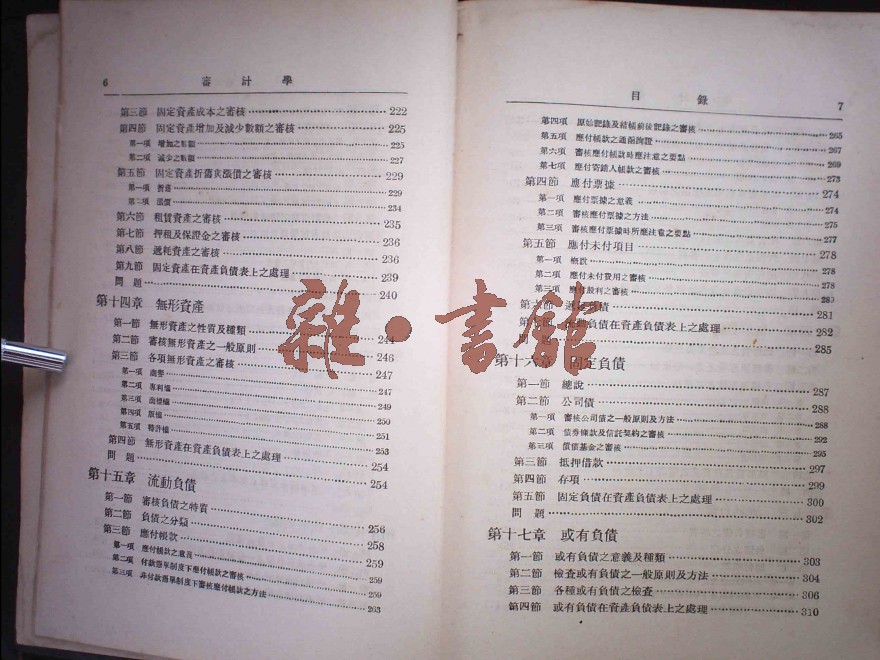 6 審計學
第三節 固定資產成本之審核 222
第四節 固定資產增加及減少數額之審核 225
第一項 增加之數額
第二項 減少之數額 227
第五節 固定資產折舊與漲價之審核 229
第一項 折舊 229
第二項 漲價 234
第六節 租賃資產之審核 235
第七節 押租及保證金之審核 236
第八節 遞耗資產之審核 236
第九節 固定資產在資產負債表上之處理 239
問題 240
第十四章 無形資產
第一節 無形資產之性質及種類 244
第二節 審核無形資產之一般原則 246
第三節 各項無形資產之審核 247
第一項 商譽 247
第二項 專利權 249
第三項 商標權 250
第四項 版權 251
第五項 特許權 253
第四節 無形資產在資產負債表上之處理 254
問題 254
第十五章 流動負債
第一節 審核負債之特質 256
第二節 負債之分類 258
第三節 應付帳款 259
第一項 應付帳款之意義 259
第二項 付款憑單制度下應付帳款之審核 259
第三項 非付款憑單制度下審核應付帳款之方法 263
目錄 7
第四項 原始記錄及結帳前後記錄之審核 265
第五項 應付帳款之通函詢證 267
第六項 審核應付帳款時應注意之要點 269
第七項 應付寄銷人帳款之審核 273
第四節 應付票據 274
第一項 應付票據之意義 274
第二項 審核應付票據之方法 275
第三項 審核應付票據時所應注意之要點 277
第五節 應付未付項目 278
第一項 概說 278
第二項 應付未付費用之審核 278
第三項 應付股利之審核 280
第六節 遞延負債 281
第七節 流動負債在資產負債表上之處理 282
問題 285
第十六章 固定負債
第一節 總說 287
第二節 公司債 288
第一項 審核公司債之一般原則及方法 288
第二項 債券條款及信託契約之審核 292
第三項 償債基金之審核 295
第三節 抵押借款 297
第四節 存項 299
第五節 固定負債在資產負債表上之處理 300
問題 302
第十七章 或有負債
第一節 或有負債之意義及種類 303
第二節 檢查或有負債之一般原則及方法 304
第三節 各種或有負債之檢查 306
第四節 或有負債在資產負債表上之處理 310
雜·書館